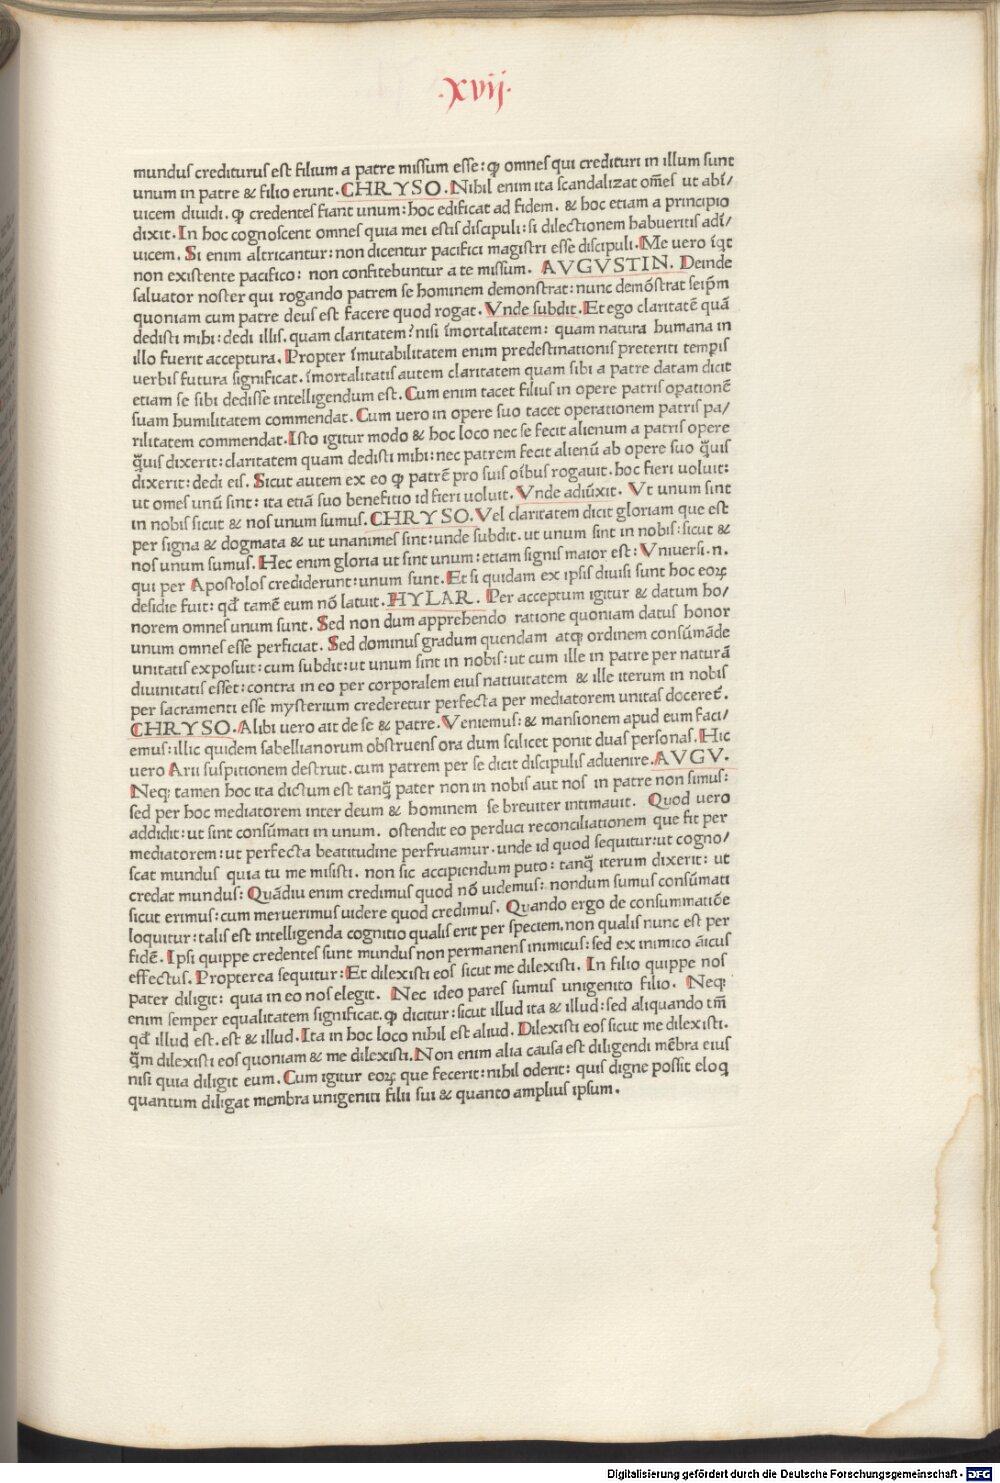 .xvij.
mundus crediturus est filium a patre missum esse: ꝙ omnes qui credituri in illum sunt
unum in patre & filio erunt. CHRYSO. Nihil enim ita scandalizat om̄es ut abī/
uicem diuidi. ꝙ credentes fiant unum: hoc edificat ad fidem. & hoc etiam a principio
dixit. In hoc cognoscent omnes quia mei estis discipuli: si dilectionem habueritis adī/
uicem. Si enim altricantur: non dicentur pacifici magistri esse discipuli. Me uero īqt
non existente pacifico: non confitebuntur a te missum. AVGVSTIN. Deinde
saluator noster qui rogando patrem se hominem demonstrat: nunc demōstrat seip̄m
quoniam cum patre deus est facere quod rogat. Vnde subdit. Et ego claritatē quā
dedisti mihi: dedi illis. quam claritatem? nisi īmortalitatem: quam natura humana in
illo fuerit acceptura. Propter īmutabilitatem enim predestinationis preteriti temp̄is
uerbis futura significat. īmortalitatis autem claritatem quam sibi a patre datam dicit
etiam se sibi dedisse intelligendum est. Cum enim tacet filius in opere patris oꝑationē
suam humilitatem commendat. Cum uero in opere suo tacet operationem patris pa/
rilitatem commendat. Isto igitur modo & hoc loco nec se fecit alienum a patris opere
q̄uis dixerit: claritatem quam dedisti mihi: nec patrem fecit alienū ab opere suo q̄uis
dixerit: dedi eis. Sicut autem ex eo ꝙ patrē pro suis oībus rogauit. hoc fieri uoluit:
ut omes unū sint: ita etiā suo benefitio id fieri uoluit. Vnde adiūxit. Vt unum sint
in nobis sicut & nos unum sumus. CHRYSO. Vel claritatem dicit gloriam que est
per signa & dogmata & ut unanimes sint: unde subdit. ut unum sint in nobis: sicut &
nos unum sumus. Hec enim gloria ut sint unum: etiam signis maior est: Vniuersi .n.
qui per Apostolos crediderunt: unum sunt. Et si quidam ex ipsis diuisi sunt hoc eoꝝ
desidie fuit: qd̄ tamē eum nō latuit. HYLAR. Per acceptum igitur & datum ho/
norem omnes unum sunt. Sed non dum apprehendo ratione quoniam datus honor
unum omnes esse perficiat. Sed dominus gradum quendam atq; ordinem consūmāde
unitatis exposuit: cum subdit: ut unum sint in nobis: ut cum ille in patre per naturā
diuinitatis esset: contra in eo per corporalem eius natiuitatem & ille iterum in nobis
per sacramenti esse mysterium crederetur perfecta per mediatorem unitas doceret̄.
CHRYSO. Alibi uero ait de se & patre. Veniemus: & mansionem apud eum faci/
emus: illic quidem sabellianorum obstruens ora dum scilicet ponit duas personas. Hic
uero Arii suspitionem destruit. cum patrem per se dicit discipulis aduenire. AVGV.
Neq; tamen hoc ita dictum est tanq̄ pater non in nobis aut nos in patre non simus:
sed per hoc mediatorem inter deum & hominem se breuiter intimauit. Quod uero
addidit: ut sint consūmati in unum. ostendit eo perduci reconciliationem que fit per
mediatorem: ut perfecta beatitudine perfruamur. unde id quod sequitur: ut cogno/
scat mundus quia tu me misisti. non sic accipiendum puto: tanq̄ iterum dixerit: ut
credat mundus: Quādiu enim credimus quod nō uidemus: nondum sumus consūmati
sicut erimus: cum meruerimus uidere quod credimus. Quando ergo de consummatiōe
loquitur: talis est intelligenda cognitio qualis erit per speciem. non qualis nunc est per
fidē. Ipsi quippe credentes sunt mundus non permanens inimicus: sed ex inimico āicus
effectus. Propterea sequitur: Et dilexisti eos sicut me dilexisti. In filio quippe nos
pater diligit: quia in eo nos elegit. Nec ideo pares sumus unigenito filio. Neq;
enim semper equalitatem significat. ꝙ dicitur: sicut illud ita & illud: sed aliquando tm̄
qd̄ illud est. est & illud. Ita in hoc loco nihil est aliud. Dilexisti eos sicut me dilexisti.
q̄m dilexisti eos quoniam & me dilexisti. Non enim alia causa est diligendi mēbra eius
nisi quia diligit eum. Cum igitur eoꝝ que fecerit: nihil oderit: quis digne possit eloq
quantum diligat membra unigeniti filii sui & quanto amplius ipsum.
Digitalisierung gefördert durch die Deutsche Forschungsgemeinschaft - DFG